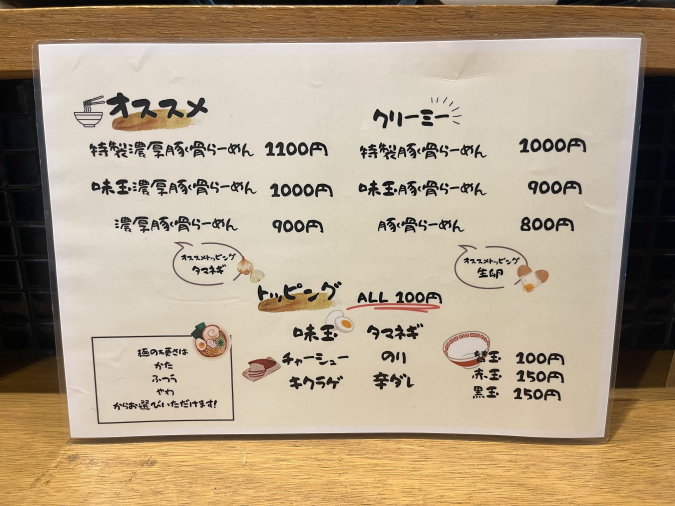 オススメ
特製濃厚豚骨らーめん 1100円
味玉濃厚豚骨らーめん 1000円
濃厚豚骨らーめん 900円
オススメトッピング
タマネギ
クリーミー
特製豚骨らーめん 1000円
味玉豚骨らーめん 900円
豚骨らーめん 800円
オススメトッピング
生卵
トッピング ALL 100円
味玉 タマネギ
チャーシュー のり
キクラゲ 辛ダレ
替玉 100円
赤玉 150円
黒玉 150円
麺の硬さは
かた
ふつう
やわ
からお選びいただけます!